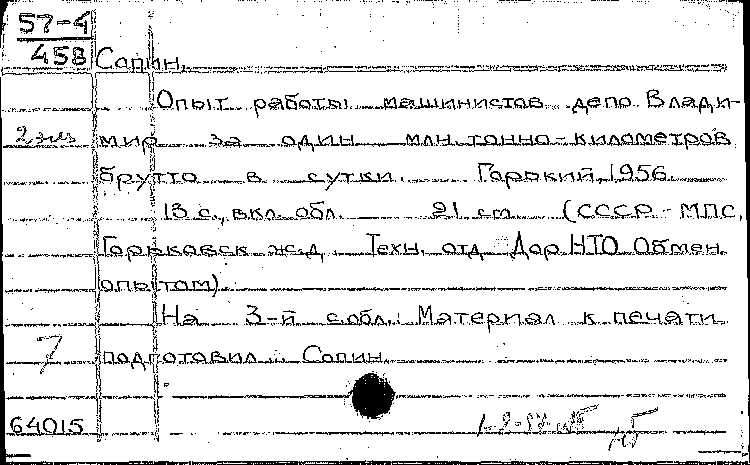 57-4
458
Сапин.
Опыт работы машинистов депо Влади-
2 экз
мир за один млн. тонно-километров
брутто в сутки. Горький, 1956.
13 с., вкл. обл. 21 см (СССР - МПС,
Горьковск ж.д. Техн. отд. Дор НТО Обмен
опытом)
На 3-й с. обл.: Материал к печати
7
подготовил.. Сапин.
64015